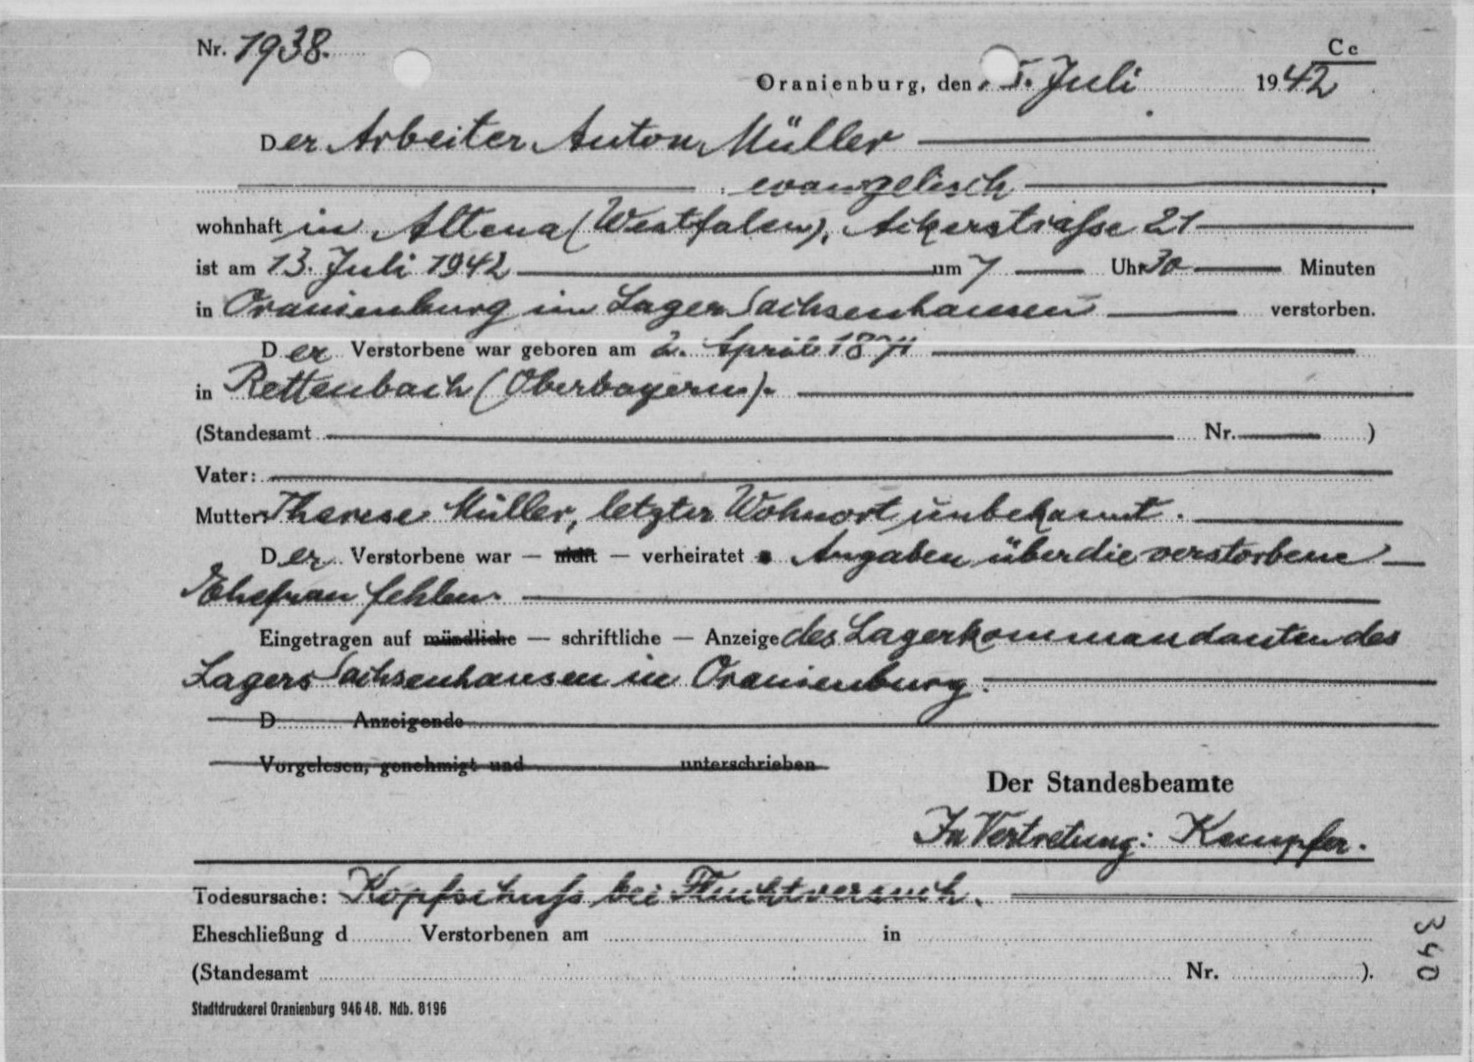 Nr. 1938. Cc
Oranienburg, den Juli 1942
Der Arbeiter Anton Müller
evangelisch
wohnhaft in Altena (Westfalen), Ackerstraße 21
ist am 13. Juli 1942 um 7 Uhr 30 Minuten
in Oranienburg im Lager Sachsenhausen verstorben.
Der Verstorbene war geboren am 2. April
in Rettenbach (Oberbayern).
(Standesamt Nr. )
Vater:
Mutter: Therese Müller, letzter Wohnort unbekannt.
Der Verstorbene war — nicht — verheiratet Angaben über die verstorbene
Ehefrau fehlen.
Eingetragen auf mündliche — schriftliche — Anzeige des Lagerkommandanten des
Lagers Sachsenhausen in Oranienburg.
D Anzeigende
Vorgelesen, genehmigt und unterschrieben
Der Standesbeamte
In Vertretung: Kempfer.
Todesursache: Kopfschuß bei Fluchtversuch.
Eheschließung d Verstorbenen am in
(Standesamt Nr. ).
Stadtdruckerei Oranienburg 946 48. Ndb. 8196
340